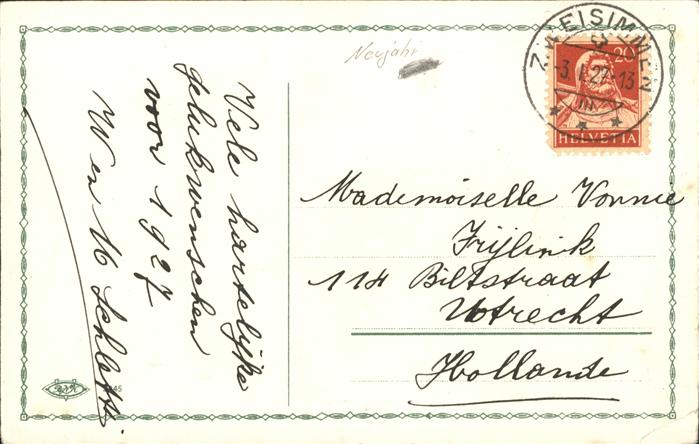 Neujahr
ZWEISIMMEN
-3. I. 27-13
20
HELVETIA
Vele hartelijke
gelukwenschen
voor 1927
W en M
Mademoiselle Vonnie
Frijlink
114 Biltstraat
Utrecht
Hollande